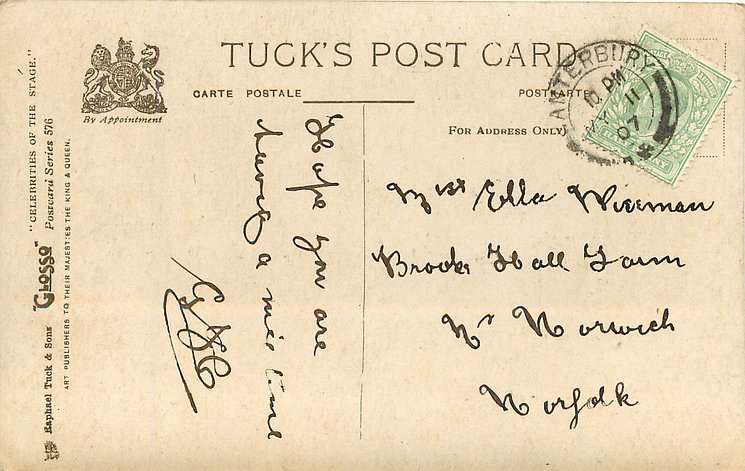 TUCK'S POST CARD
CARTE POSTALE
POSTKARTE
By Appointment
FOR ADDRESS ONLY
"CELEBRITIES OF THE STAGE."
"GLOSSO" Postcard Series 576
Raphael Tuck & Sons
ART PUBLISHERS TO THEIR MAJESTIES THE KING & QUEEN.
CANTERBURY
PM
MY 11
07
Hope you are
having a nice time
Miss Ella Wiseman
Brook Hall Farm
Nr Norwich
Norfolk